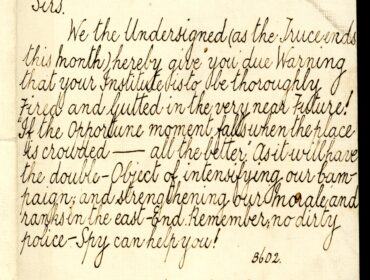 Sirs.
We the Undersigned (as the Truce ends
this Month) hereby give you due Warning
that your Institute is to be thoroughly
Fired and Gutted in the very near Future!
"If the Opportune moment falls when the place
is crowded — all the better," As it will have
the double-Object of intensifying our Cam-
paign, and strengthening our Morale, and
ranks in the east-End. Remember, no dirty
police-Spy can help you!
3602.